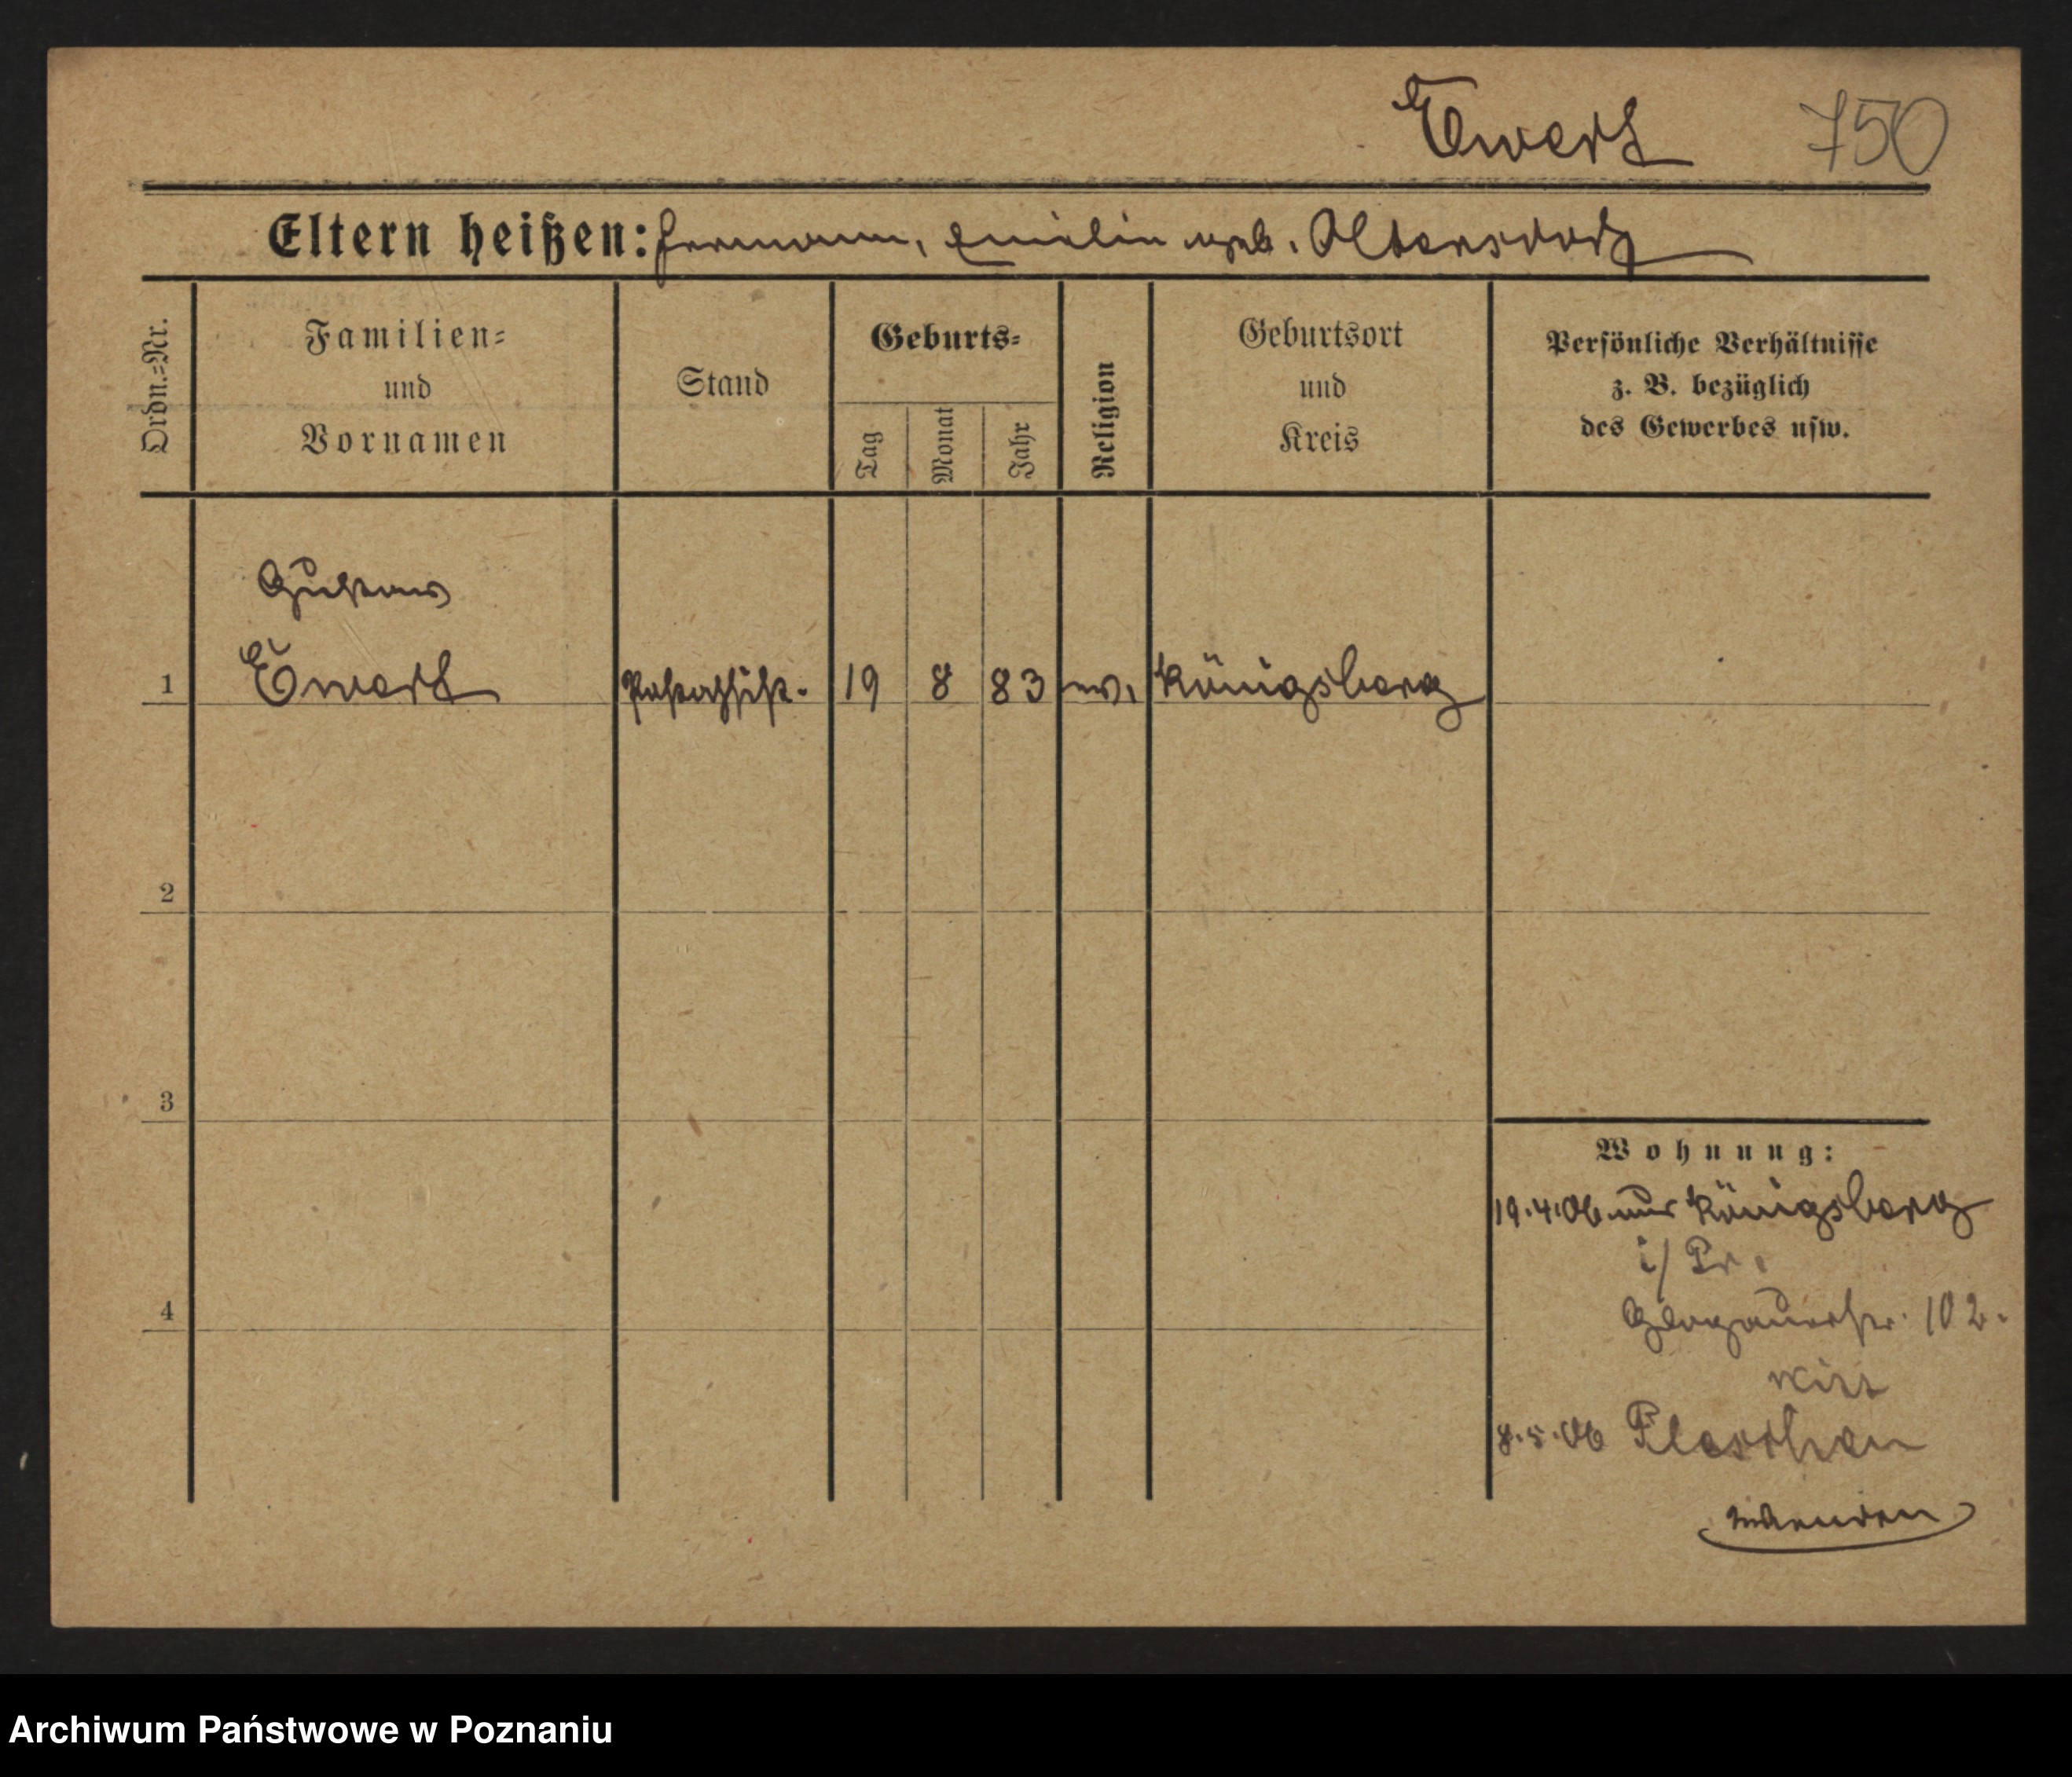 Ewert 750
Eltern heißen: Hermann, Emilie geb. Altersdorf
Ordn.=Nr.
Familien=
und
Vornamen
Stand
Geburts=
Tag
Monat
Jahr
Religion
Geburtsort
und
Kreis
Persönliche Verhältnisse
z. B. bezüglich
des Gewerbes usw.
Gustav
1 Ewert Postassist. 19 8 83 ev. Königsberg
2
3
4
Wohnung:
19.4.06 aus Königsberg
i/Pr.
Glogauerstr. 102.
8.5.06 Pleschen
Archiwum Państwowe w Poznaniu